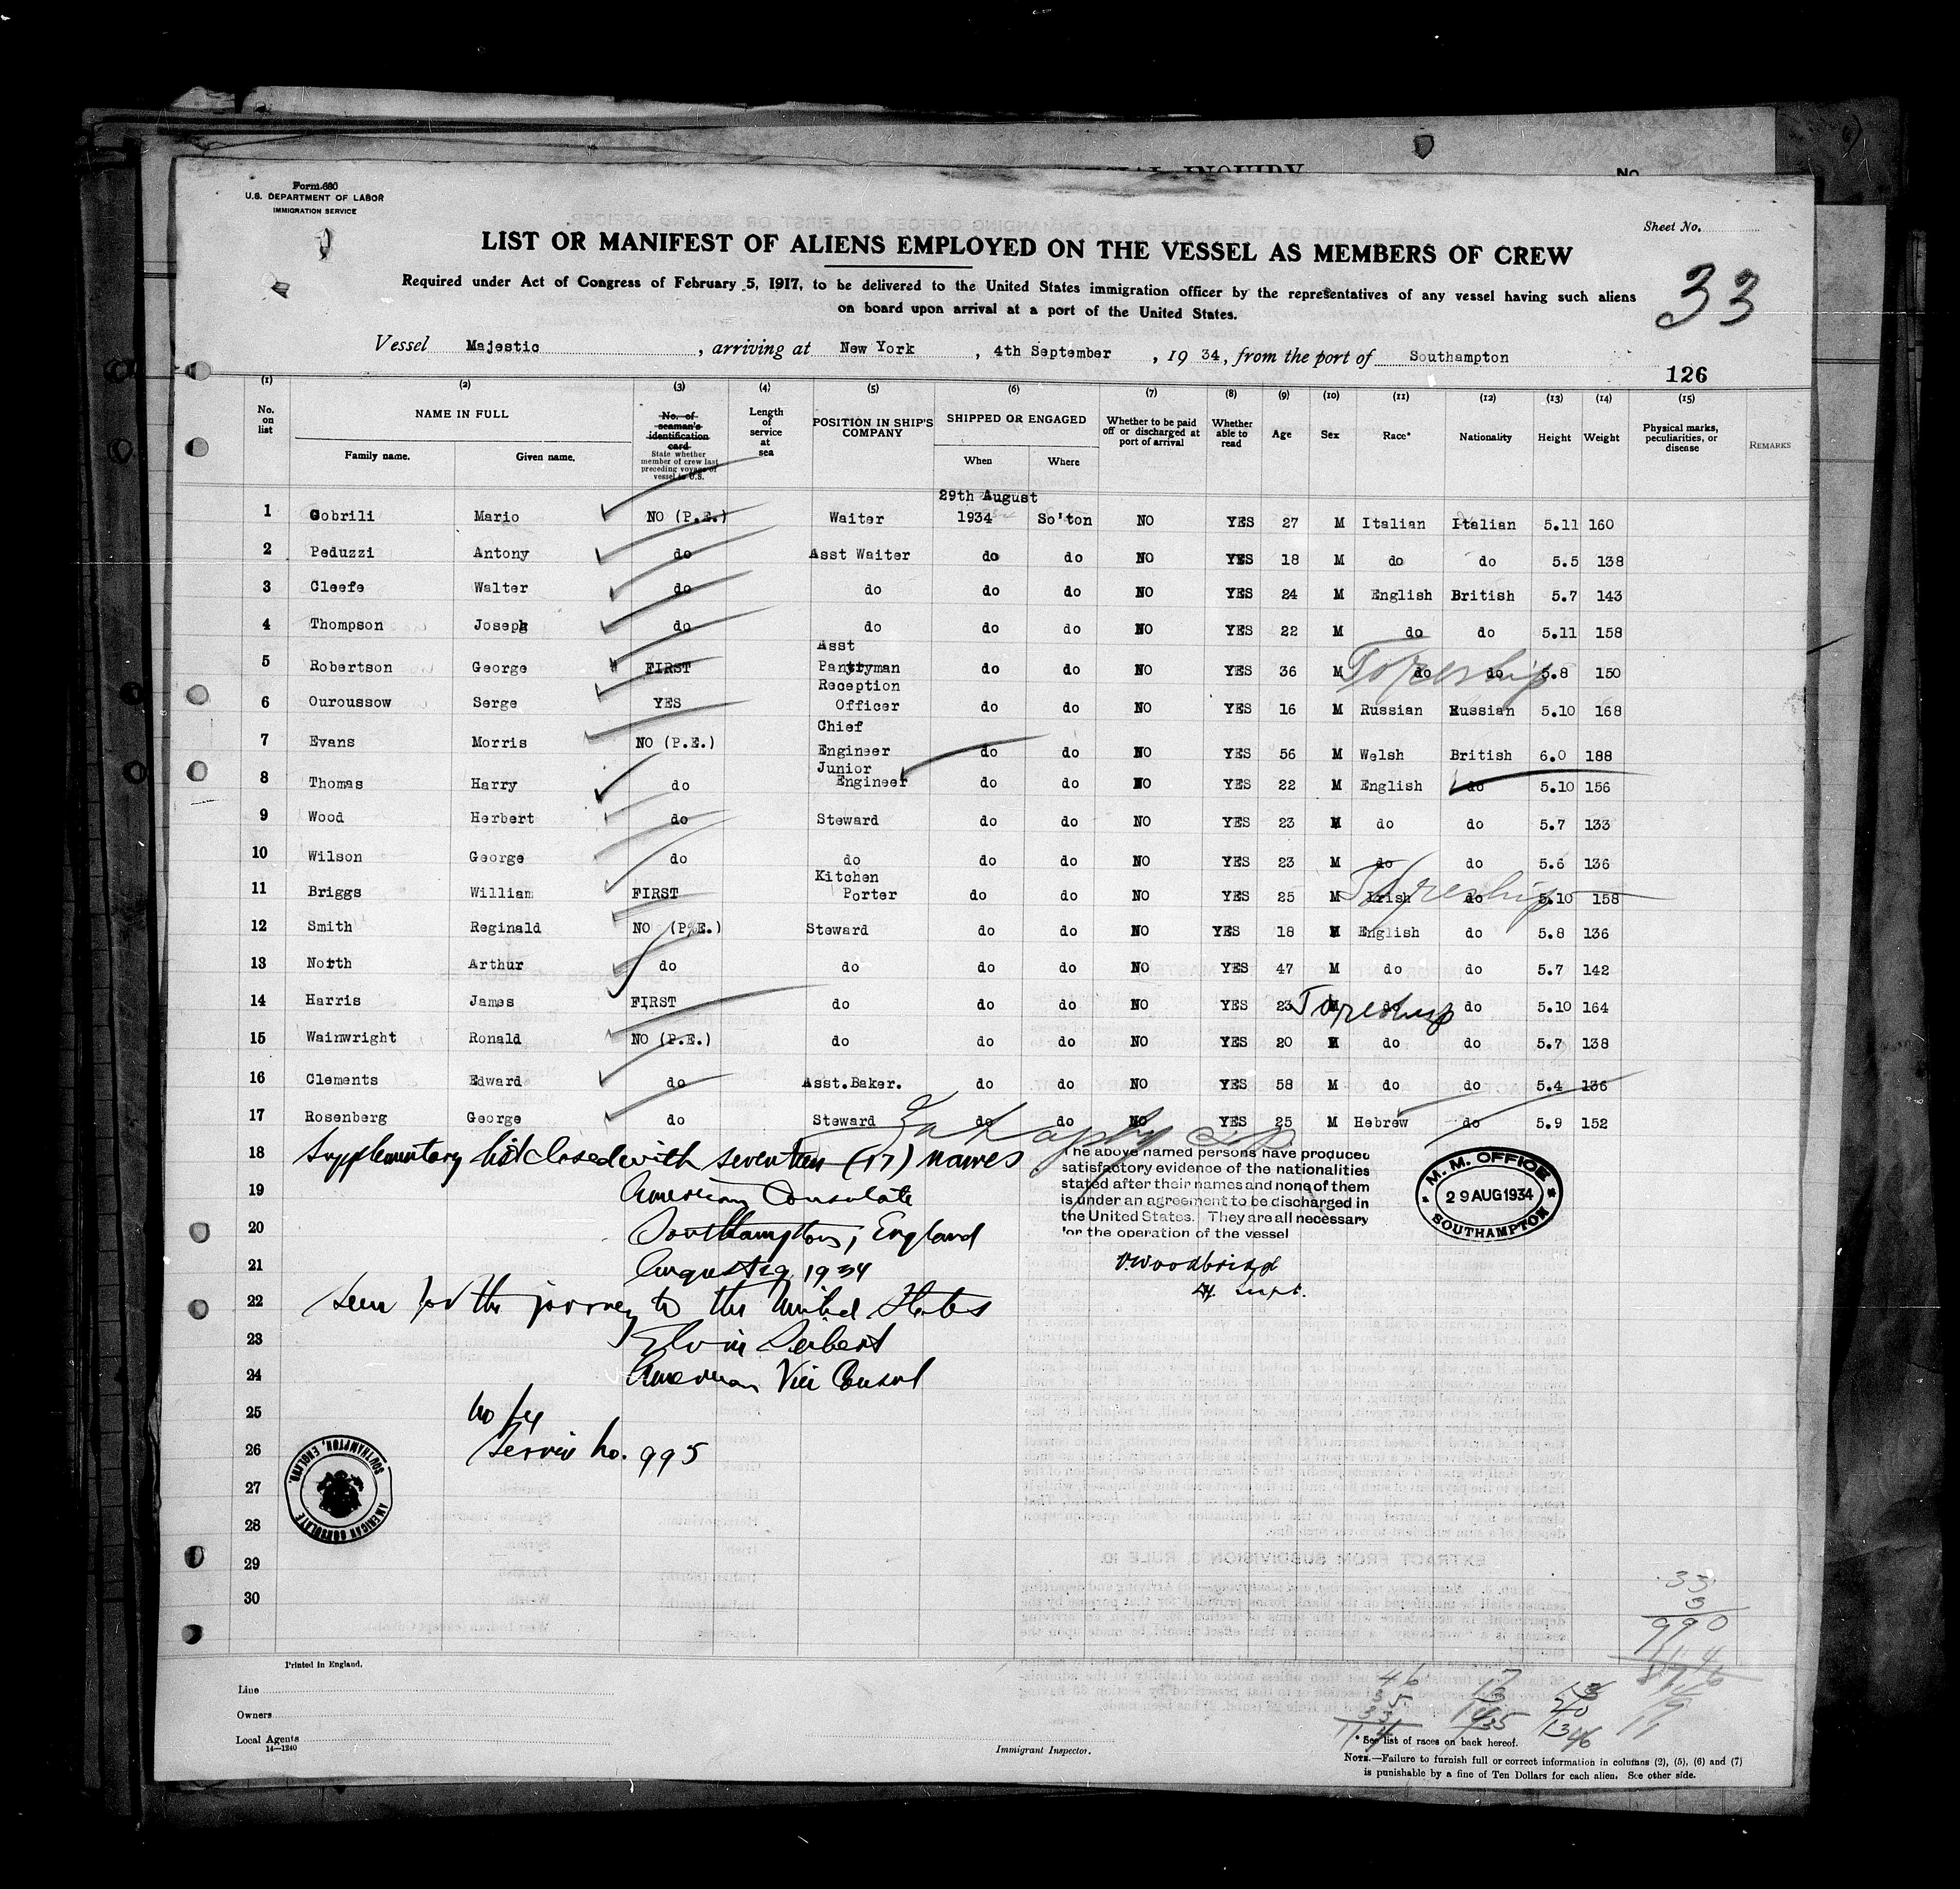 Form 680
U.S. DEPARTMENT OF LABOR
IMMIGRATION SERVICE
No.
Sheet No.
LIST OR MANIFEST OF ALIENS EMPLOYED ON THE VESSEL AS MEMBERS OF CREW
Required under Act of Congress of February 5, 1917, to be delivered to the United States immigration officer by the representatives of any vessel having such aliens
on board upon arrival at a port of the United States.
33
Vessel Majestic, arriving at New York, 4th September, 1934, from the port of Southampton
126
(1) (2) (3) (4) (5) (6) (7) (8) (9) (10) (11) (12) (13) (14) (15)
No. on list
NAME IN FULL
Family name. Given name.
No. of seaman's identification card
State whether member of crew last preceding voyage of vessel to U.S.
Length of service at sea
POSITION IN SHIP'S COMPANY
SHIPPED OR ENGAGED
When Where
Whether to be paid off or discharged at port of arrival
Whether able to read
Age Sex Race* Nationality Height Weight
Physical marks, peculiarities, or disease
REMARKS
29th August
1 Gobrili Mario NO (P.E.) Waiter 1934 So'ton NO YES 27 M Italian Italian 5.11 160
2 Peduzzi Antony do Asst Waiter do do NO YES 18 M do do 5.5 138
3 Cleefe Walter do do do do NO YES 24 M English British 5.7 143
4 Thompson Joseph do do do do NO YES 22 M do do 5.11 158
5 Robertson George FIRST Asst Pantryman do do NO YES 36 M do do 5.8 150
6 Ouroussow Serge YES Reception Officer do do NO YES 16 M Russian Russian 5.10 168
7 Evans Morris NO (P.E.) Chief Engineer do do NO YES 56 M Welsh British 6.0 188
8 Thomas Harry do Junior Engineer do do NO YES 22 M English do 5.10 156
9 Wood Herbert do Steward do do NO YES 23 M do do 5.7 133
10 Wilson George do do do do NO YES 23 M do do 5.6 136
11 Briggs William FIRST Kitchen Porter do do NO YES 25 M Irish do 5.10 158
12 Smith Reginald NO (P.E.) Steward do do NO YES 18 M English do 5.8 136
13 North Arthur do do do do NO YES 47 M do do 5.7 142
14 Harris James FIRST do do do NO YES 23 M do do 5.10 164
15 Wainwright Ronald NO (P.E.) do do do NO YES 20 M do do 5.7 138
16 Clements Edward do Asst.Baker. do do NO YES 58 M do do 5.4 136
17 Rosenberg George do Steward do do NO YES 25 M Hebrew do 5.9 152
18 Supplementary list closed with seventeen (17) names
19 American Consulate
20 Southampton, England
21 August 29, 1934
22 Seen for the journey to the United States
23
24 American Vice Consul
25 No fee
26 Service No. 995
27
28
29
30
The above named persons have produced
satisfactory evidence of the nationalities
stated after their names and none of them
is under an agreement to be discharged in
the United States. They are all necessary
for the operation of the vessel
Supt.
M. M. OFFICE
29 AUG 1934
SOUTHAMPTON
AMERICAN CONSULATE
SOUTHAMPTON, ENGLAND.
EXTRACT FROM SUBDIVISION 3, RULE 10.
33
990
Printed in England.
Line
Owners
Local Agents
14—1240
Immigrant Inspector.
* See list of races on back hereof.
NOTE.—Failure to furnish full or correct information in columns (2), (5), (6) and (7)
is punishable by a fine of Ten Dollars for each alien. See other side.